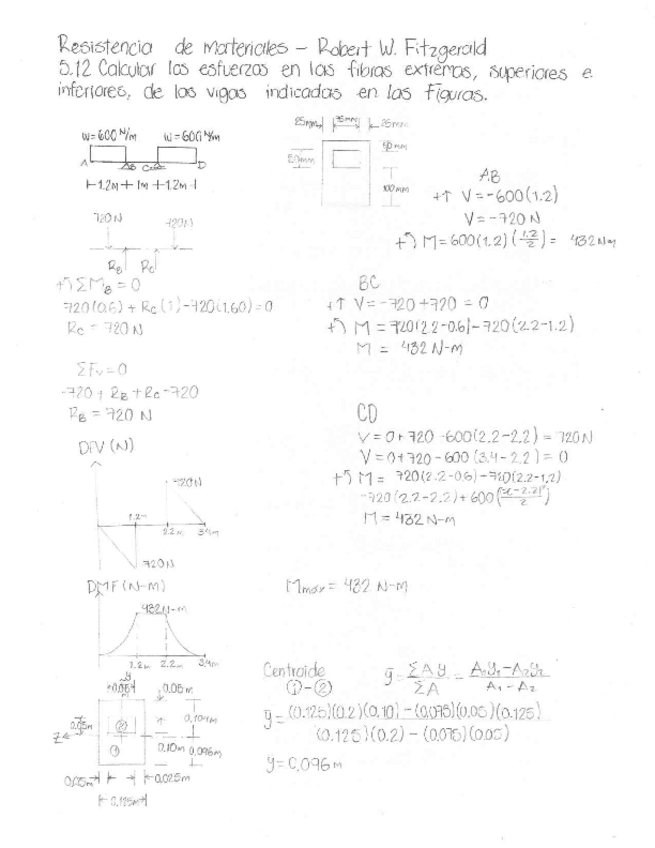 Resistencia de materiales - Robert W. Fitzgerald
5.12 Calcular los esfuerzos en las fibras extremas, superiores e
inferiores, de las vigas indicadas en las Figuras.
w=600 N/m w=600 N/m
A B C D
1.2m + 1m + 1.2m
720N 720N
R_B R_C
25mm 75mm 25mm
50mm
50mm
100mm
AB
+↑ V=-600(1.2)
V=-720 N
+↰ M=600(1.2)(1.2/2)= 432 Nm
+↰ ΣM_B=0
720(0.6)+Rc(1)-720(1.60)=0
Rc=720N
ΣFv=0
-720+R_B+Rc-720
R_B=720 N
BC
+↑ V=-720+720=0
+↰ M=720(2.2-0.6)-720(2.2-1.2)
M = 432 N-m
CD
V=0+720-600(2.2-2.2)=720N
V=0+720-600(3.4-2.2)=0
+↰ M= 720(2.2-0.6)-720(2.2-1.2)
-720(2.2-2.2)+600
M=432 N-m
DFV (N)
720N
1.2m 2.2m 3.4m
720N
DMF (N-m)
432N-m
1.2m 2.2m 3.4m
Mmax= 432 N-m
Centroide
①-②
ȳ=ΣAy/ΣA=A₁y₁-A₂y₂/A₁-A₂
ȳ=(0.125)(0.2)(0.10)-(0.075)(0.05)(0.125)/(0.125)(0.2)-(0.075)(0.05)
y=0.096m
y
0.05m
0.104m
②
z
①
0.10m 0.096m
0.025m
0.125m